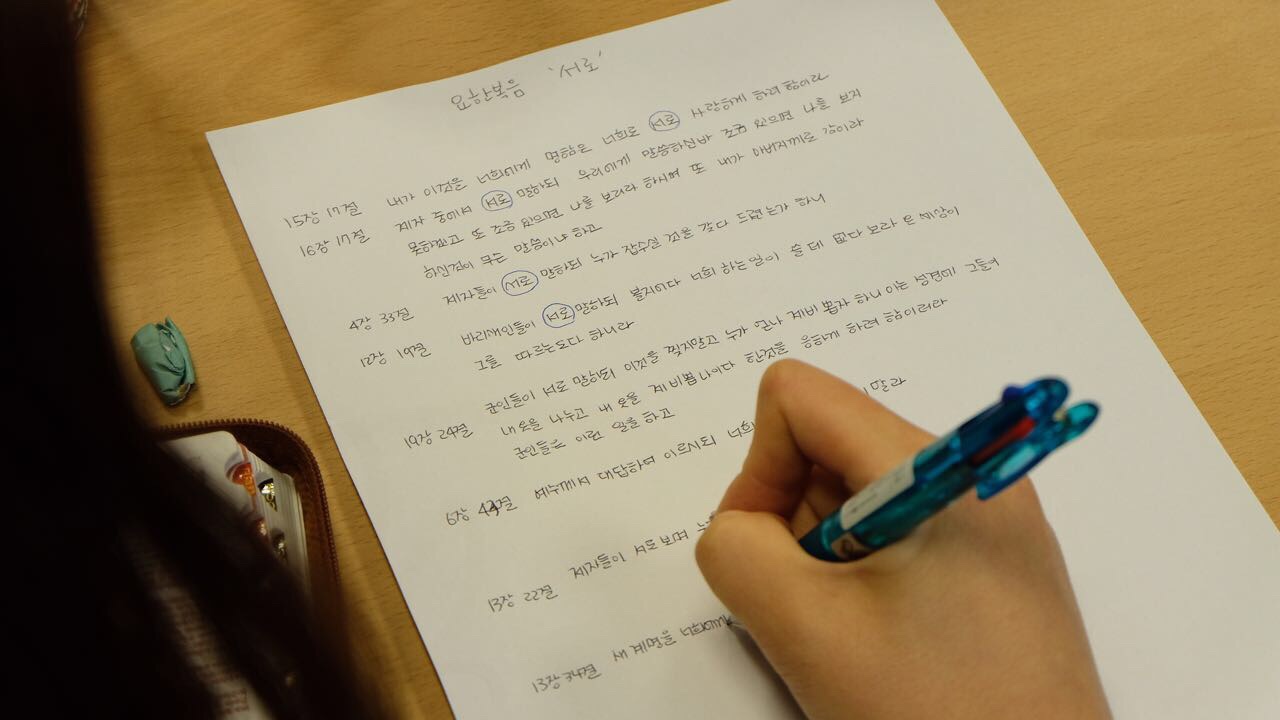 요한복음 '서로'
15장 17절 내가 이것을 너희에게 명함은 너희로 서로 사랑하게 하려 함이라
16장 17절 제자 중에서 서로 말하되 우리에게 말씀하신바 조금 있으면 나를 보지
못하겠고 또 조금 있으면 나를 보리라 하시며 또 내가 아버지께로 감이라
하신것이 무슨 말씀이냐 하고
4장 33절 제자들이 서로 말하되 누가 잡수실 것을 갖다 드렸는가 하니
12장 19절 바리새인들이 서로 말하되 볼지어다 너희 하는일이 쓸 데 없다 보라 온 세상이
그를 따르는도다 하니라
19장 24절 군인들이 서로 말하되 이것을 찢지말고 누가 얻나 제비 뽑자 하니 이는 성경에 그들이
내 옷을 나누고 내 옷을 제비뽑나이다 한것을 응하게 하려 함이러라
군인들은 이런 일을 하고
6장 43절 예수께서 대답하여 이르시되 너희 말라
13장 22절 제자들이 서로 보며
13장 34절 새 계명을 너희에게